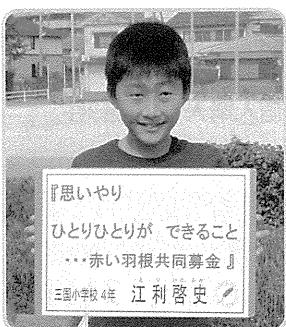 『思いやり
ひとりひとりが できること
・・・赤い羽根共同募金 』
三国小学校 4年 江利啓史